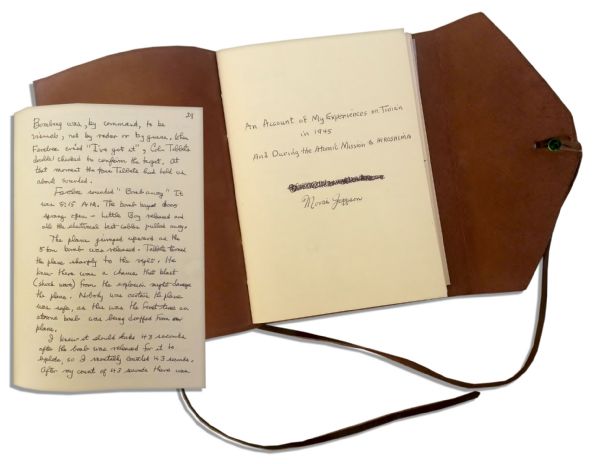 28
Bombing was, by command, to be
visual, not by radar or by guess. When
Ferebee cried "I've got it", Col. Tibbets
double checked to confirm the target. At
that moment the four Tibbets had told us
about sounded.
Ferebee sounded "Bomb away" It
was 8:15 A.M. The bomb bay doors
sprang open – Little Boy released and
all the electrical test cables pulled away.
The plane jumped upward as the
5 ton bomb was released. Tibbets turned
the plane sharply to the right. He
knew there was a chance that blast
(shock wave) from the explosion might damage
the plane. Nobody was certain the plane
was safe, as this was the first time an
atomic bomb was being dropped from
plane.
I knew it should take 43 seconds
after the bomb was released for it to
explode, so I mentally counted 43 seconds.
After my count of 43 seconds there was
An Account of My Experiences on Tinian
in 1945
And During the Atomic Mission to HIROSHIMA
Morris Jeppson